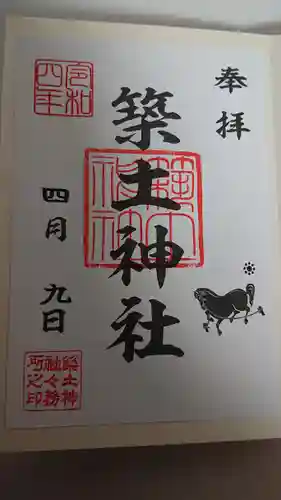 奉拝
築土神社
築土
神社
令和
四年
四月九日
築土神
社々務
所之印